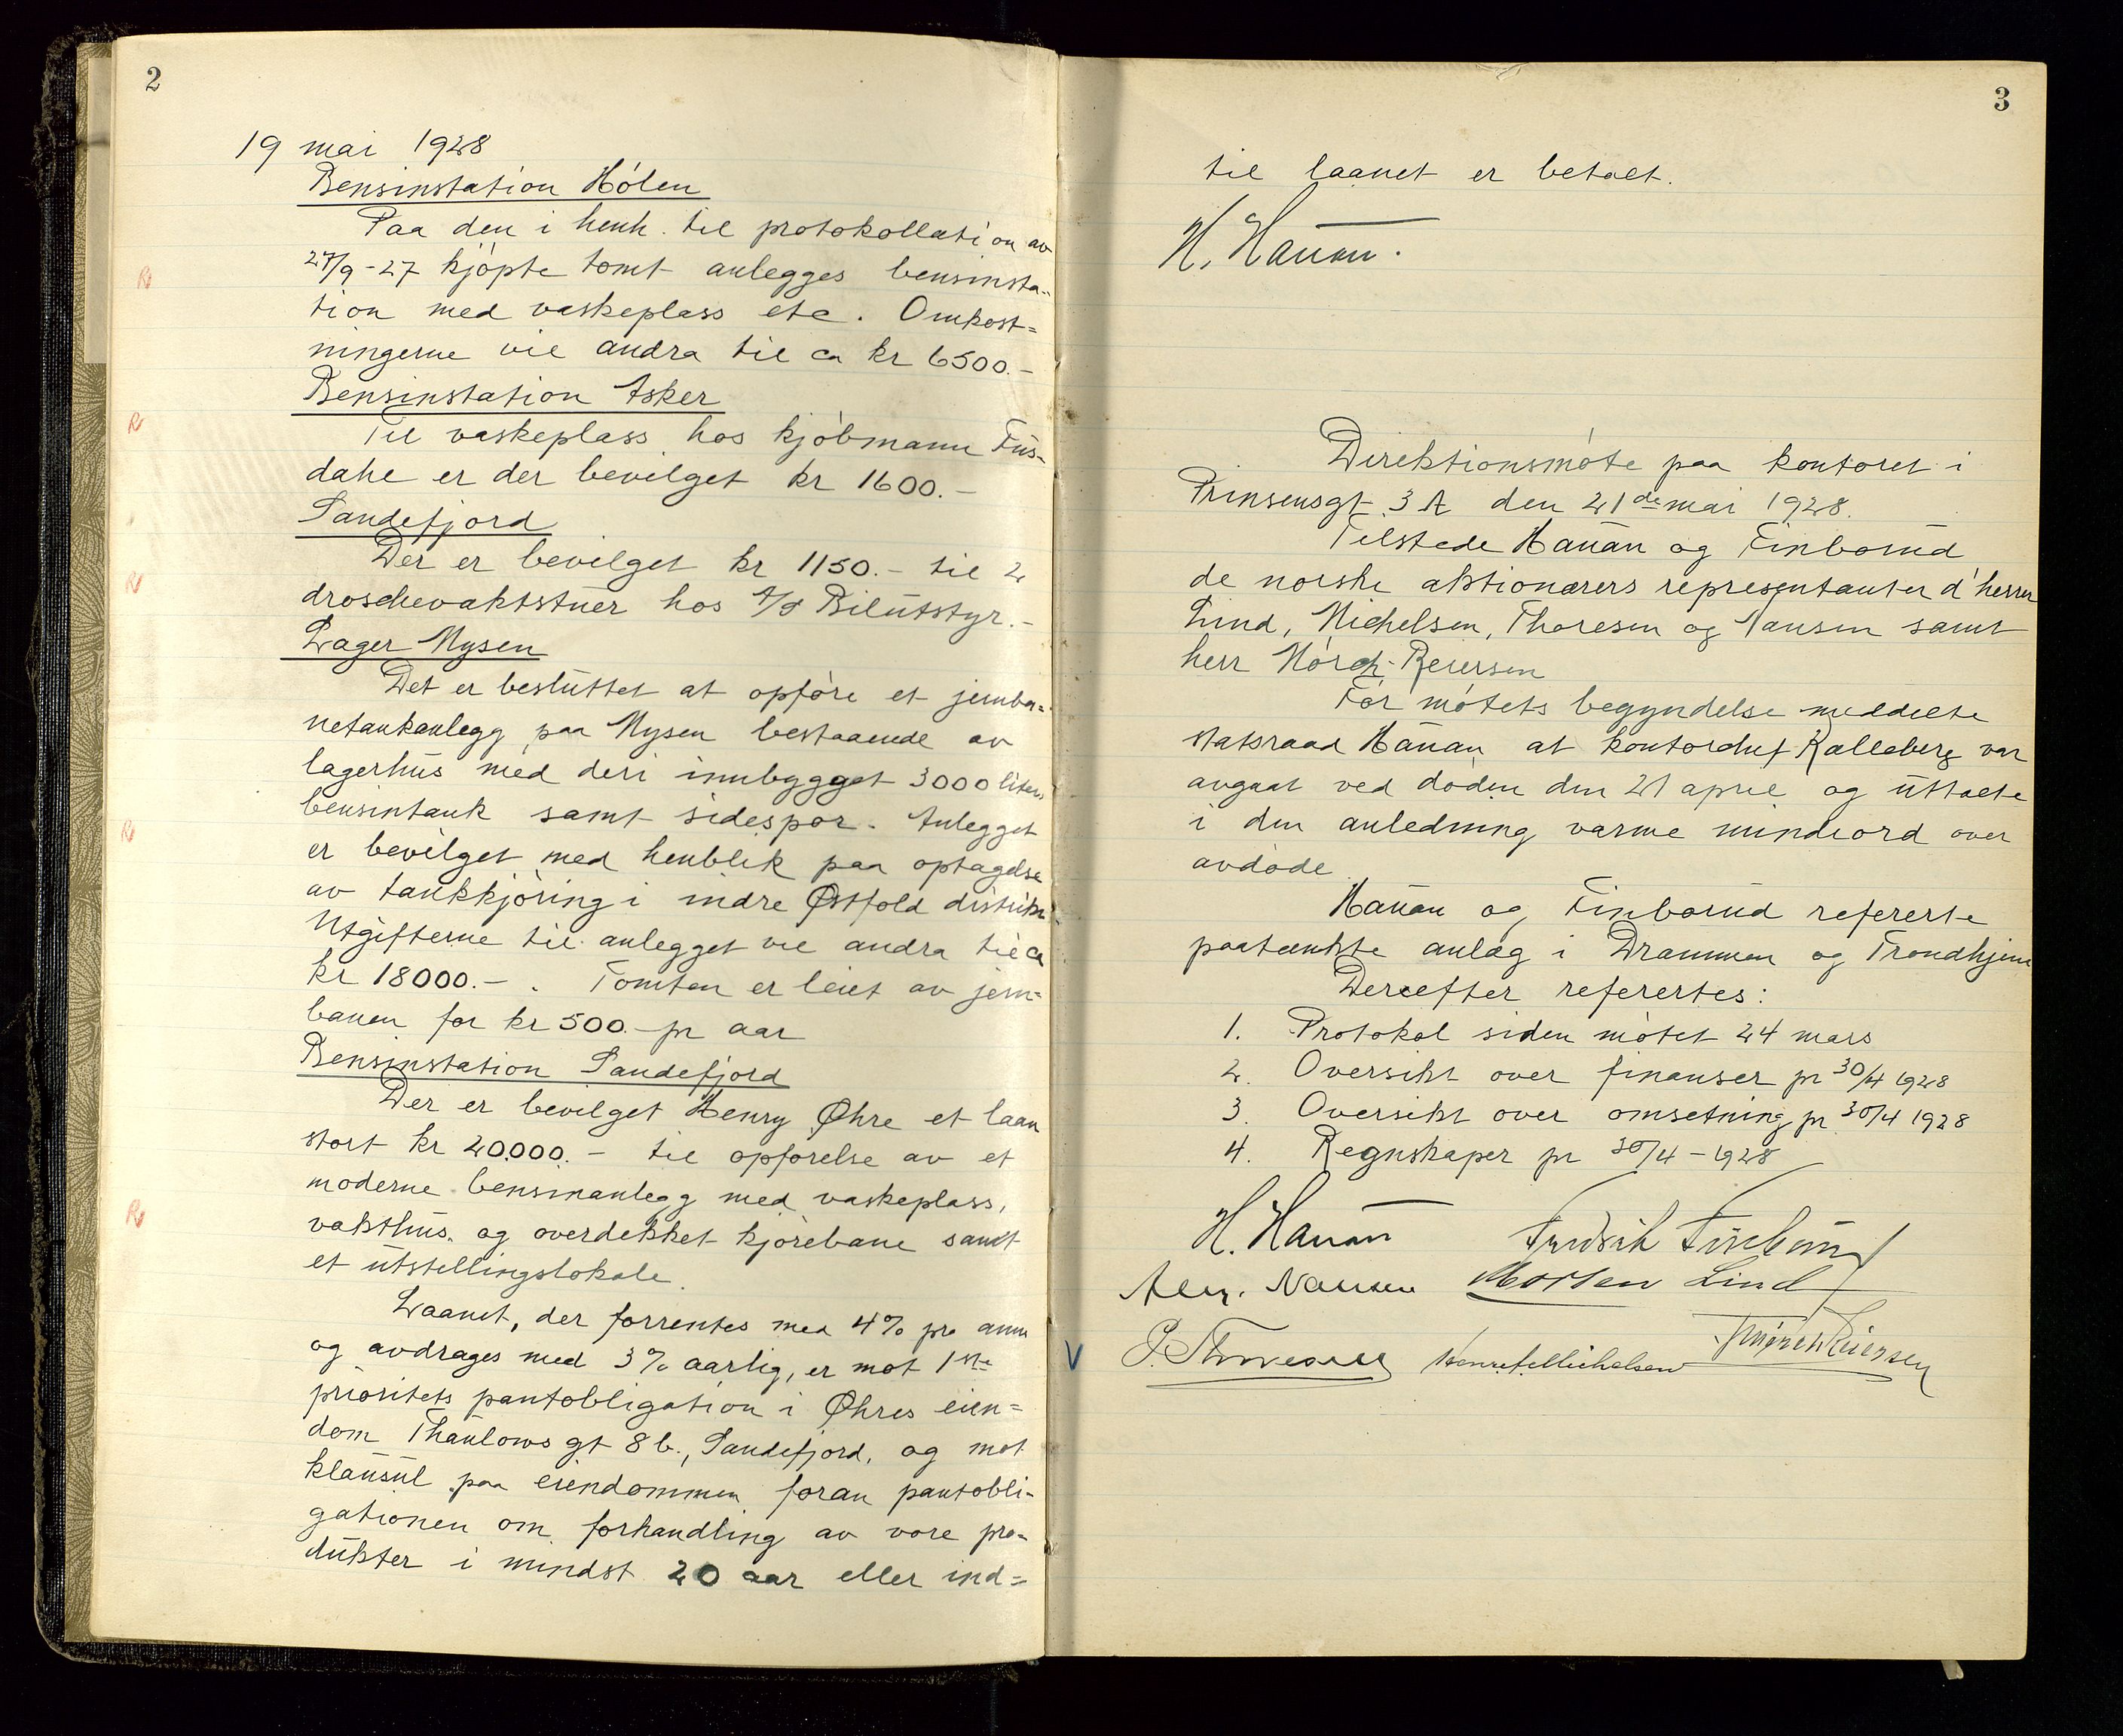 2
19 mai 1928
Bensinstation Hölen
Paa den i henh. til protokollation av
27/9-27 kjøpte tomt anlegges bensinsta-
tion med vaskeplass etc. Omkost=
ningerne vil andra til ca kr 6500.-
R
Bensinstation Asker
Til vaskeplass hos kjöbmann Fus-
dahl er der bevilget kr 1600.-
R
Sandefjord
Der er bevilget kr 1150.- til 2
droschevaktstuer hos A/S Bilutstyr.-
R
Lager Mysen
Det er besluttet at opføre et jernba=
netankanlegg paa Mysen bestaaende av
lagerhus med deri innbygget 3000 liters
bensintank samt sidespor. Anlegget
er bevilget med henblik paa optagelse
av tankkjøring i indre Østfold distrikt.
Utgifterne til anlegget vil andra til ca
kr 18000.-. Tomten er leiet av jern-
banen for kr 500.- pr aar
R
Bensinstation Sandefjord
Der er bevilget Henry Øhre et laan
stort kr 20.000.- til opførelse av et
moderne bensinanlegg med vaskeplass,
vakthus og overdekket kjørebane samt
et utstellingslokale.
R
Laanet, der forrentes med 4% pro anno
og avdrages med 3% aarlig, er mot 1ste
prioritets pantobligation i Øhres eien=
dom Thaulows gt 8b., Sandefjord, og mot
klausul paa eiendommen foran pantobli-
gationen om forhandling av vore pro-
dukter i mindst 20 aar eller ind=
3
til laanet er betalt.
H. Hauan.
Direktionsmøte paa kontoret i
Prinsensgt 3A den 21de mai 1928.
Tilstede Hauan og Finborud
de norske aktionærers representanter d'herrer
Lind, Michelsen, Thoresen og Nansen samt
herr Mørch-Reiersen
Før møtets begyndelse meddelte
statsraad Hauan at kontorchef Kalleberg var
avgaat ved døden den 21 april og uttalte
i den anledning varme mindeord over
avdøde.
Hauan og Finborud refererte
paatænkte anlæg i Drammen og Trondhjem
Derefter refererdes:
1. Protokol siden møtet 24 mars
2. Oversikt over finanser pr 30/4 1928
3. Oversikt over omsetning pr 30/4 1928
4. Regnskaper pr 30/4-1928
H. Hauan Fredrik Finborud
Alex. Nansen Morten Lind
V P. Thoresen Henrik Michelsen Mørch Reiersen